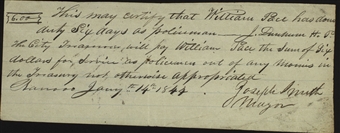 $6.00
This may certify that William Pace has done
duty Six days as policeman — J. Dunham H. P.
The City Treasurer, will pay William Pace the Sum of Six
dollars for Service as policeman out of any Monies in
the Treasury not otherwise appropriated
Nauvoo Jany 14th 1844
Joseph Smith
Mayor